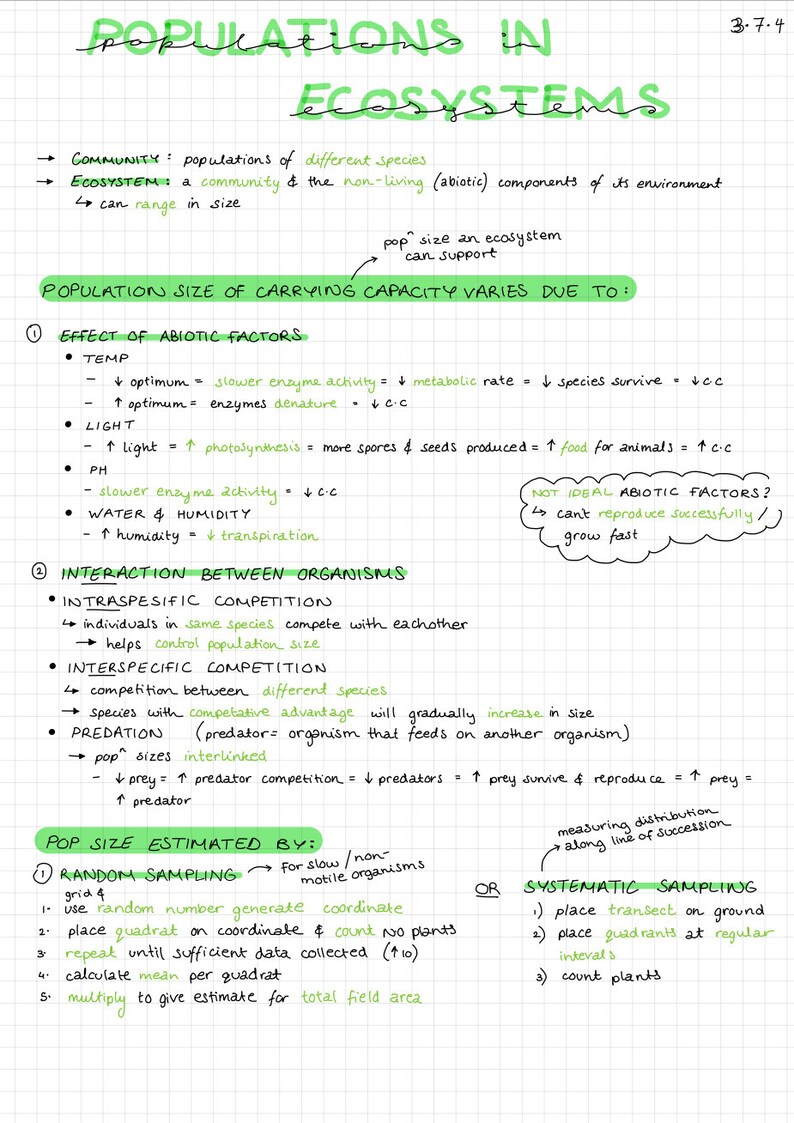 3.7.4
POPULATIONS IN
populations in
ECOSYSTEMS
ecosystems
→ COMMUNITY: populations of different species
→ ECOSYSTEM: a community & the non-living (abiotic) components of its environment
↳ can range in size
popⁿ size an ecosystem
can support
POPULATION SIZE OF CARRYING CAPACITY VARIES DUE TO:
① EFFECT OF ABIOTIC FACTORS
• TEMP
- ↓ optimum = slower enzyme activity = ↓ metabolic rate = ↓ species survive = ↓ c.c
- ↑ optimum = enzymes denature = ↓ c.c
• LIGHT
- ↑ light = ↑ photosynthesis = more spores & seeds produced = ↑ food for animals = ↑ c.c
• PH
- slower enzyme activity = ↓ c.c
• WATER & HUMIDITY
- ↑ humidity = ↓ transpiration
NOT IDEAL ABIOTIC FACTORS?
↳ can't reproduce successfully /
grow fast
② INTERACTION BETWEEN ORGANISMS
• INTRASPESIFIC COMPETITION
↳ individuals in same species compete with eachother
→ helps control population size
• INTERSPECIFIC COMPETITION
↳ competition between different species
→ species with competative advantage will gradually increase in size
• PREDATION (predator = organism that feeds on another organism)
→ popⁿ sizes interlinked
- ↓ prey = ↑ predator competition = ↓ predators = ↑ prey survive & reproduce = ↑ prey =
↑ predator
POP SIZE ESTIMATED BY:
① RANDOM SAMPLING → for slow/non-
motile organisms
grid &
1. use random number generate coordinate
2. place quadrat on coordinate & count No plants
3. repeat until sufficient data collected (↑10)
4. calculate mean per quadrat
5. multiply to give estimate for total field area
measuring distribution
along line of succession
OR SYSTEMATIC SAMPLING
1) place transect on ground
2) place quadrants at regular
intevals
3) count plants